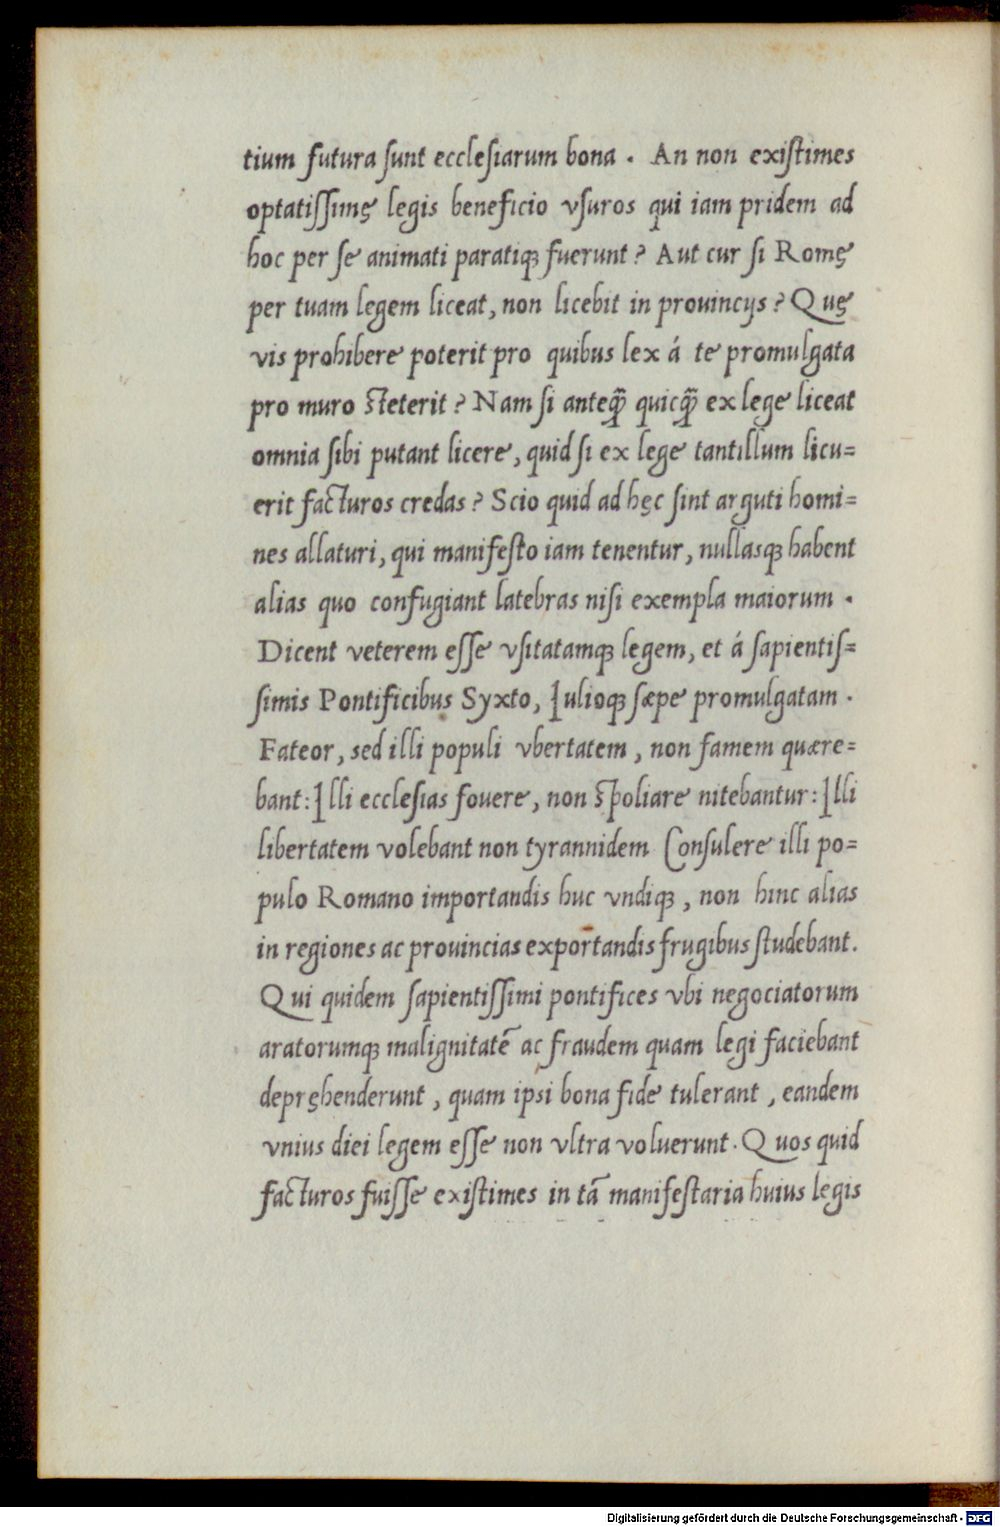 tium futura ſunt eccleſiarum bona . An non exiſtimes
optatiſſimę legis beneficio vſuros qui iam pridem ad
hoc per ſe animati paratiqꝫ fuerunt ? Aut cur ſi Romę
per tuam legem liceat, non licebit in prouincijs ? Quę
vis prohibere poterit pro quibus lex á te promulgata
pro muro ſteterit ? Nam ſi anteꝗ̃ quicꝗ̃ ex lege liceat
omnia ſibi putant licere, quid ſi ex lege tantillum licu=
erit facturos credas ? Scio quid ad hęc ſint arguti homi=
nes allaturi, qui manifeſto iam tenentur, nullasqꝫ habent
alias quo confugiant latebras niſi exempla maiorum .
Dicent veterem eſſe vſitatamqꝫ legem, et á ſapientiſ=
ſimis Pontificibus Syxto, Iulioqꝫ ſæpe promulgatam .
Fateor, sed illi populi vbertatem , non famem quære=
bant: Illi eccleſias fouere, non ſpoliare nitebantur: Illi
libertatem volebant non tyrannidem Conſulere illi po=
pulo Romano importandis huc vndiqꝫ , non hinc alias
in regiones ac prouincias exportandis frugibus ſtudebant.
Qui quidem ſapientiſſimi pontifices vbi negociatorum
aratorumqꝫ malignitatē ac fraudem quam legi faciebant
depręhenderunt , quam ipsi bona fide tulerant , eandem
vnius diei legem eſſe non vltra voluerunt. Quos quid
facturos fuiſſe exiſtimes in tā manifeſtaria huius legis
Digitalisierung gefördert durch die Deutsche Forschungsgemeinschaft - DFG